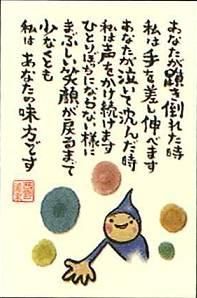 あなたが躓き倒れた時
私は手を差し伸べます
あなたが泣いて沈んだ時
私は声をかけ続けます
ひとりぼっちにならない様に
まぶしい笑顔が戻るまで
少なくとも
私はあなたの味方です